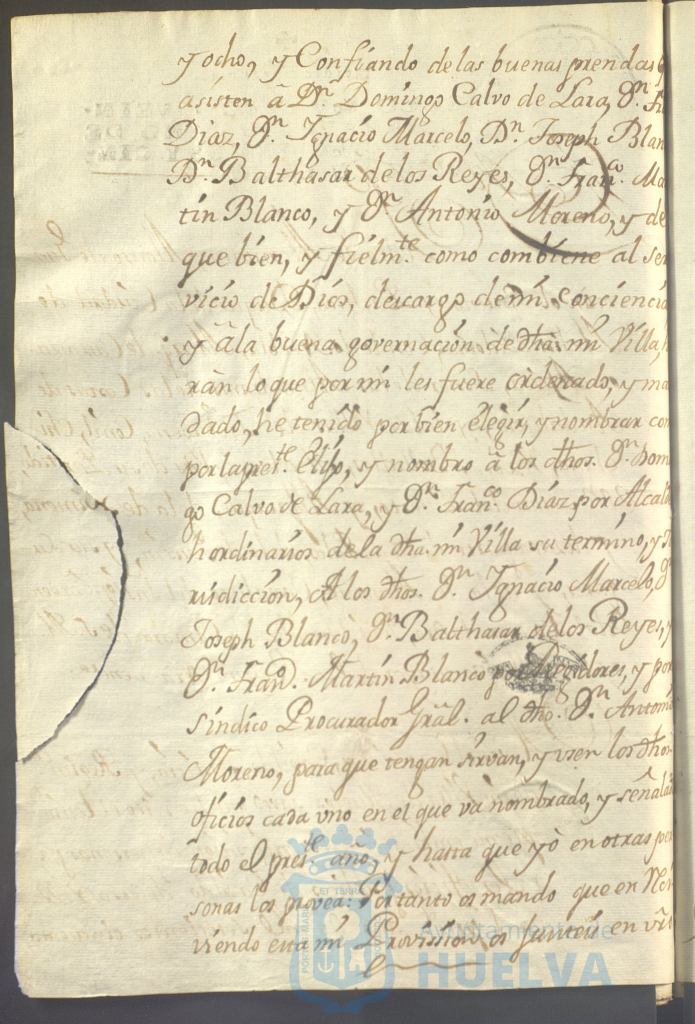 y ocho, y Confiando de las buenas prendas q
asisten â Dn. Domingo Calvo de Lara, Dn. Fr
Diaz, Dn. Ignacio Marcelo, Dn. Joseph Blan
Dn. Balthasar de los Reyes, Dn. Franco. Ma
tin Blanco, y Dn. Antonio Moreno, y de
que bien, y fielmte. como combiene al ser
vicio de Dios, descargo de mi Conciencia
y âla buena governacion de dha. mi Villa, h
ràn lo que por mi les fuere ordenado, y ma
dado, he tenido por bien elegir, y nombrar co
por la prete. Elijo, y nombro â los dhos. Dn. Dom
go Calvo de Lara, y Dn. Franco. Diaz por Alcald
hordinarios de la dha. mi Villa su termino, y
risdiccion, A los dhos. Dn. Ignacio Marcelo, Dn
Joseph Blanco, Dn. Balthasar de los Reyes, y
Dn. Franco. Martin Blanco por Regidores, y por
sindico Procurador Gràl. al dho. Dn. Antoni
Moreno, para que tengan sirvan, y usen los dhos
oficios cada vno en el que và nombrado, y señala
todo el preste. año, y hasta que yò en otras per
sonas los provea: Por tanto os mando que en Re
viendo esta mi Provission os junteis en vro
PORTUS MARIS ET TERRAE
Ayuntamiento de
HUELVA